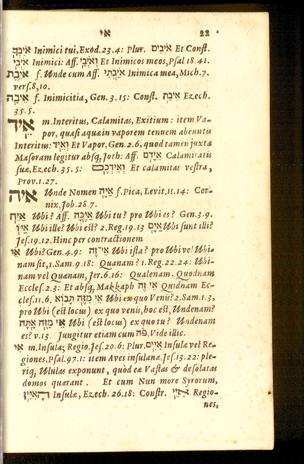 אי 22
אֹיִבְךָ Inimici tui, Exod. 23. 4: Plur. אֹיְבִים Et Const.
אֹיְבֵי Inimici: Aff. וְאֹיְבַי Et Inimicos meos, Psal 18. 41.
אֹיֶבֶת f. Unde cum Aff. אֹיַבְתִּי Inimica mea, Mich. 7.
vers. 8, 10.
אֵיבָה f. Inimicitia, Gen. 3. 15: Const. אֵיבַת Ezech.
35. 5.
אֵיד m. Interitus, Calamitas, Exitium: item Va-
por, quasi aqua in vaporem tenuem abeuntis
Interitus: וְאֵד Et Vapor, Gen. 2. 6, quod tamen juxta
Masoram legitur absq, Joth: Aff. אֵידָם Calamitatis
suæ, Ezech. 35. 5: וְאֵידְכֶם Et calamitas vestra,
Prov. 1. 27.
איה Unde Nomen אַיָּה f. Pica, Levit. 11. 14: Cor-
nix, Job. 28. 7.
אַיֵּה Ubi? Aff. אַיֶּכָּה Ubi tu? pro Ubi es? Gen. 3. 9.
אַיּוֹ Ubi ille? Ubi est? 2. Reg. 19. 13 אַיָּם Ubi sunt illi?
Jes. 19. 12. Hinc per contractionem
אי Ubi? Gen. 4. 9: אֵי־זֶה Ubi ista? pro Ubi ve? Ubi-
nam sit, 1. Sam. 9. 18: Quanam? 1. Reg. 22. 24: Ubi-
nam vel Quanam, Jer. 6. 16: Qualenam. Quodnam
Eccles. 2. 3: Et absq, Makkaph אֵי זֶה Quidnam Ec-
cles. 11. 6. אֵי מִזֶּה תָּבוֹא Ubi ex quo Venis? 2. Sam. 1. 3,
pro Ubi (est locus) ex quo venis, hoc est, Undenam?
אֵי מִזֶּה אַתָּה Ubi (est locus) ex quo tu? Undenam
es? v. 13. Jungitur etiam cum פֹּה, Vide illic.
אִי m. Insula; Regio, Jes. 20. 6: Plur. אִיִּים Insulæ vel Re-
giones, Psal. 97. 1: item Aves insulanæ, Jes. 13. 22: ple-
riq, Ululas exponunt, quòd eæ Vastas & desolatas
domos quærant. Et cum Nun more Syrorum,
הָאִיִּן Insulæ, Ezech. 26. 18: Constr. אִיֵּי Regio-
nes,